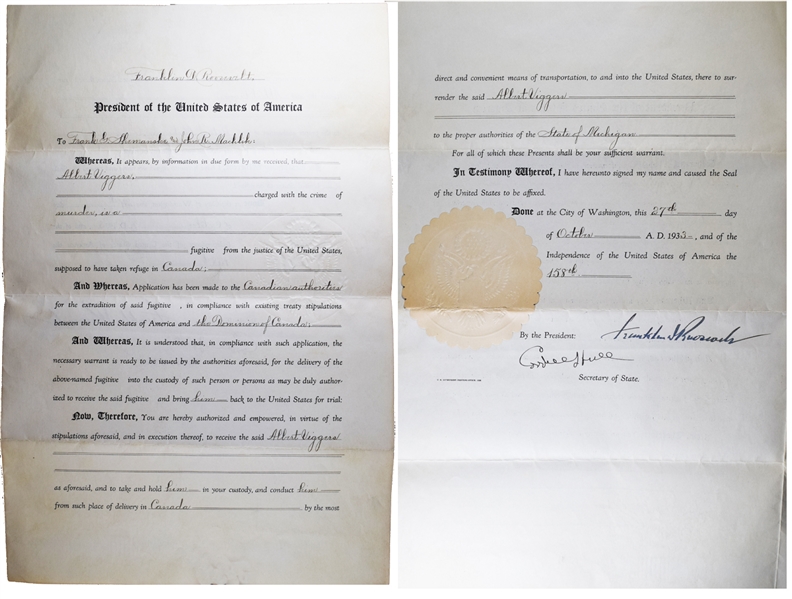 Franklin D. Roosevelt.
President of the United States of America
To Frank G. Shemanske & John R. Machlik.
Whereas, It appears, by information in due form by me received, that
Albert Viggers,
charged with the crime of
murder,
fugitive from the justice of the United States,
supposed to have taken refuge in Canada;
And Whereas, Application has been made to the Canadian authorities
for the extradition of said fugitive , in compliance with existing treaty stipulations
between the United States of America and the Dominion of Canada;
And Whereas, It is understood that, in compliance with such application, the
necessary warrant is ready to be issued by the authorities aforesaid, for the delivery of the
above-named fugitive into the custody of such person or persons as may be duly author-
ized to receive the said fugitive and bring him back to the United States for trial:
Now, Therefore, You are hereby authorized and empowered, in virtue of the
stipulations aforesaid, and in execution thereof, to receive the said Albert Viggers
as aforesaid, and to take and hold him in your custody, and conduct him
from such place of delivery in Canada, by the most
direct and convenient means of transportation, to and into the United States, there to sur-
render the said Albert Viggers
to the proper authorities of the State of Michigan
For all of which these Presents shall be your sufficient warrant.
In Testimony Whereof, I have hereunto signed my name and caused the Seal
of the United States to be affixed.
Done at the City of Washington, this 27th day
of October A. D. 1933, and of the
Independence of the United States of America the
158th.
By the President: Franklin D Roosevelt
Cordell Hull
Secretary of State.